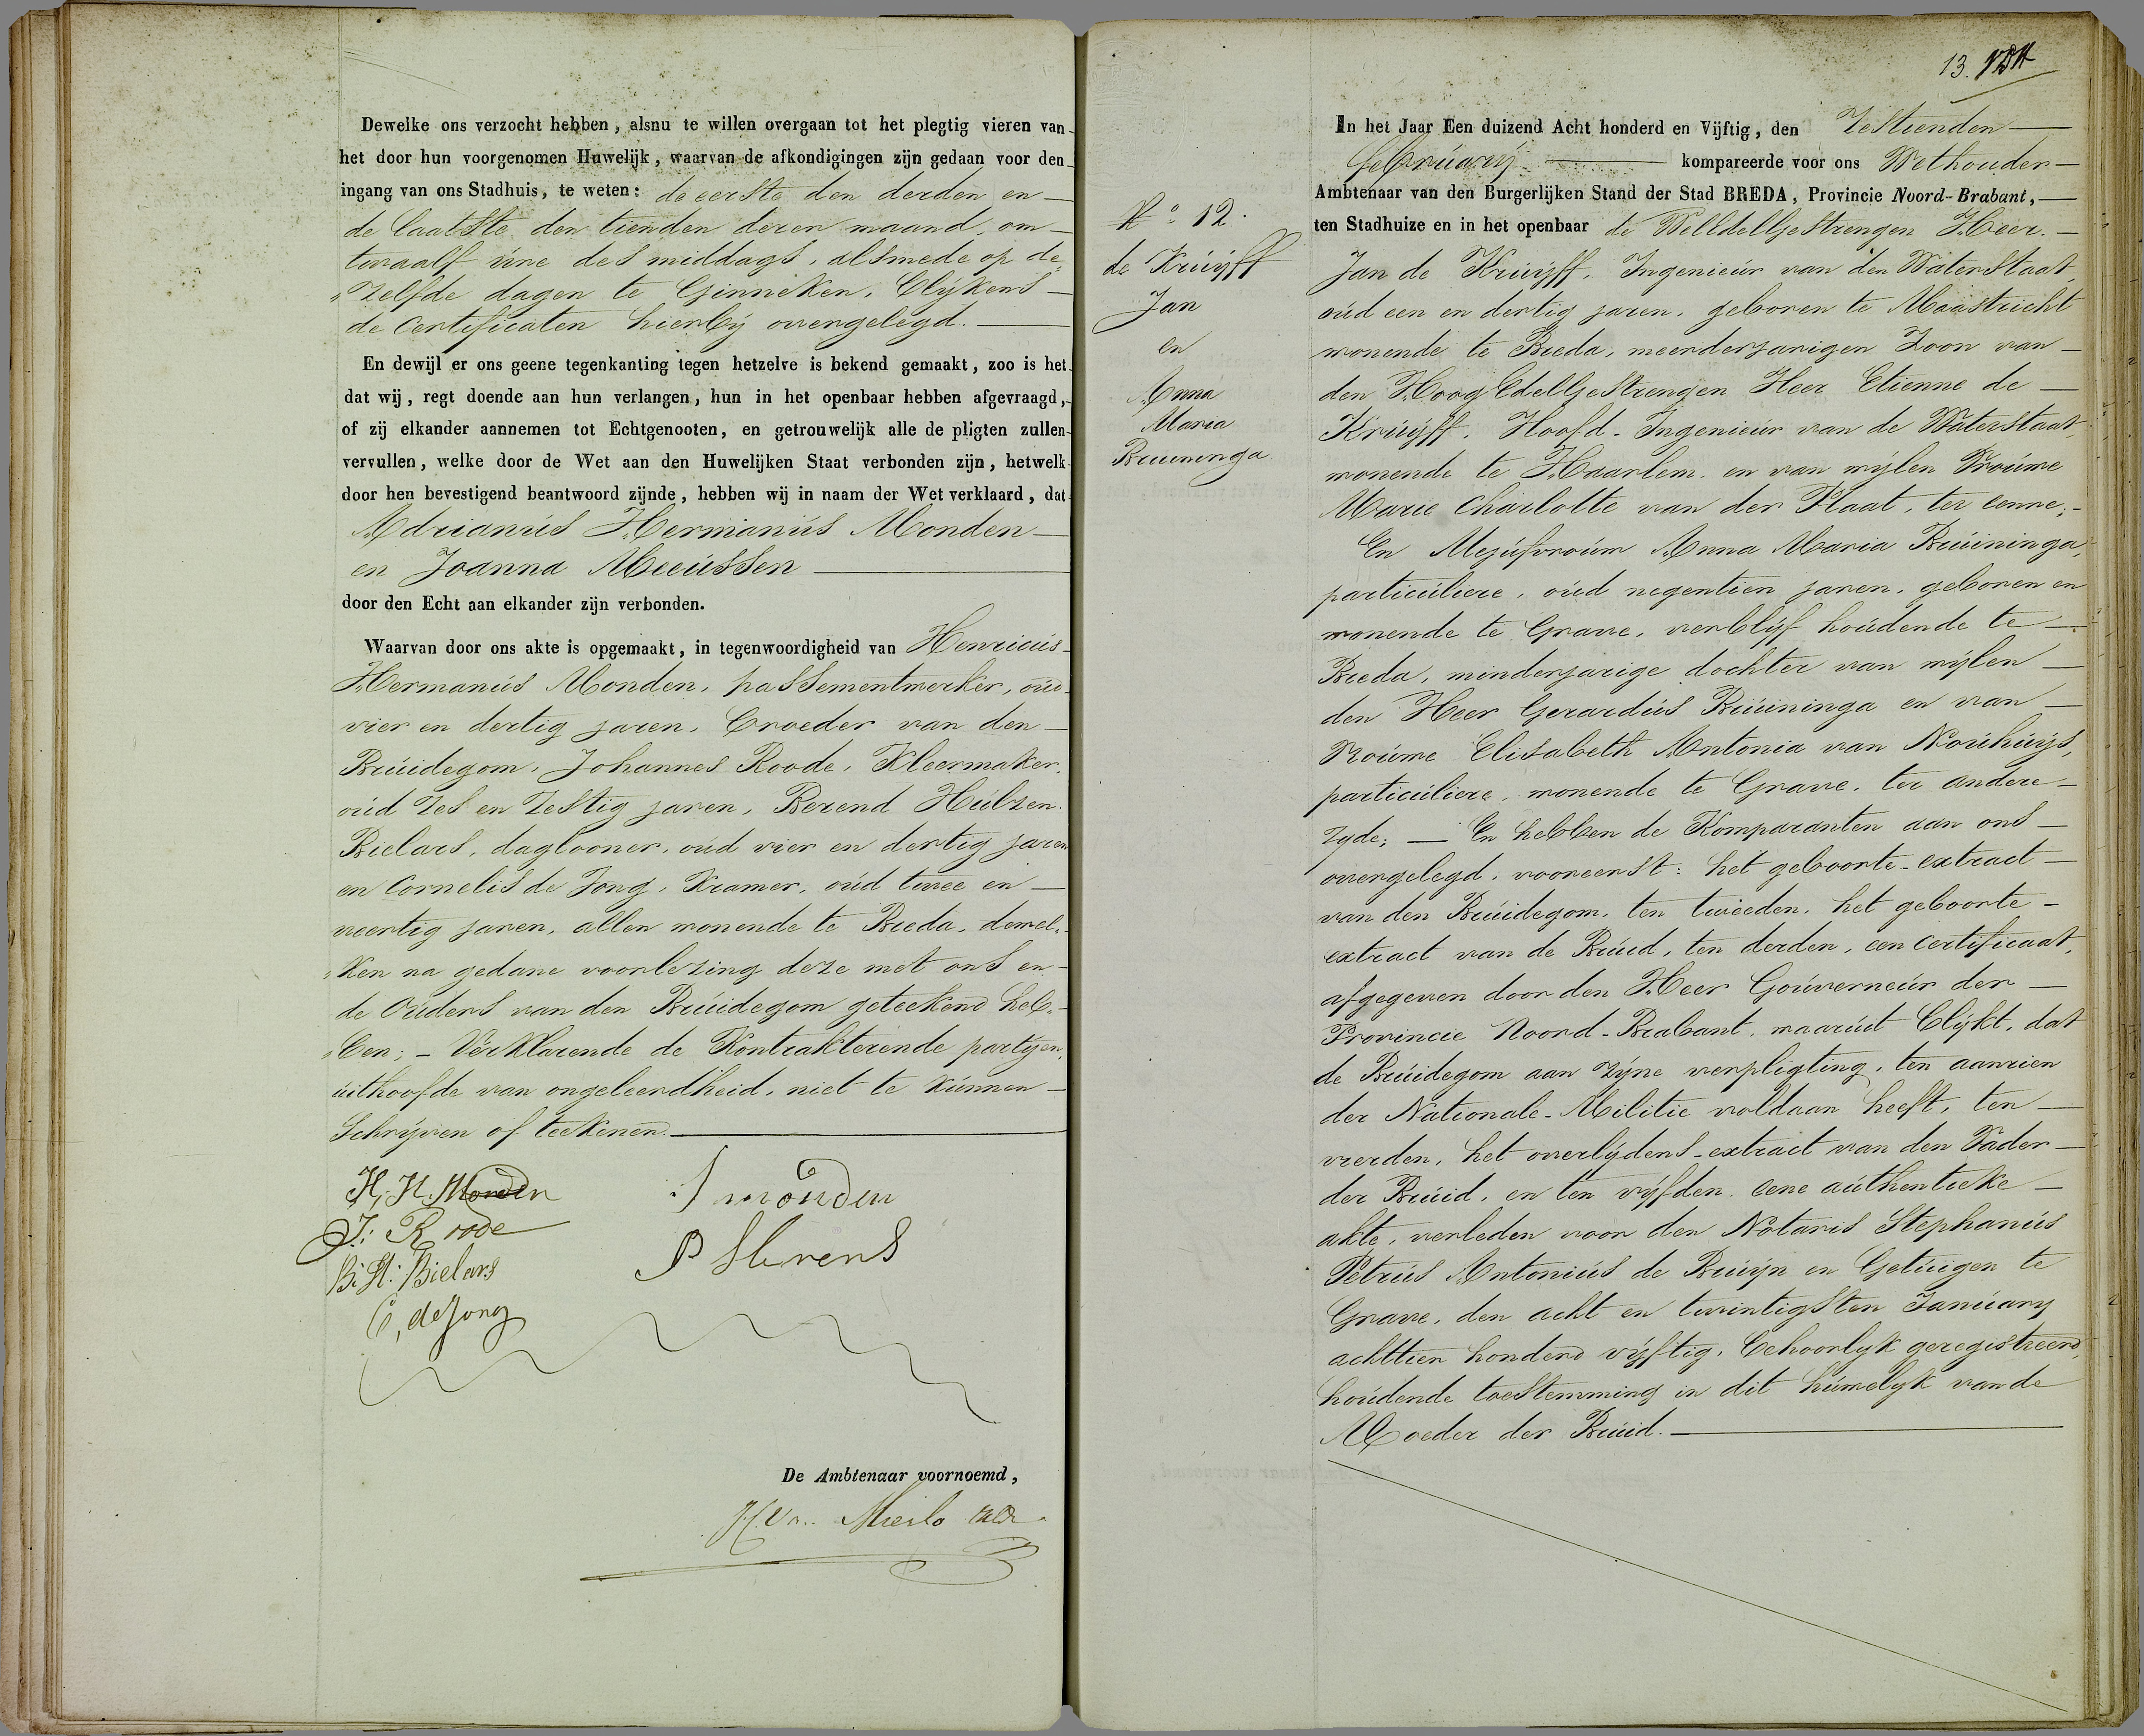 Dewelke ons verzocht hebben, alsnu te willen overgaan tot het plegtig vieren van
het door hun voorgenomen Huwelijk, waarvan de afkondigingen zijn gedaan voor den
ingang van ons Stadhuis, te weten: de eerste den derden en
de laatste den tienden dezer maand, om
twaalf úúre des middags, alsmede op de
"zelfde dagen te Ginneken, blijkens
de certificaten hierbij overgelegd.
En dewijl er ons geene tegenkanting tegen hetzelve is bekend gemaakt, zoo is het
dat wij, regt doende aan hun verlangen, hun in het openbaar hebben afgevraagd,
of zij elkander aannemen tot Echtgenooten, en getrouwelijk alle de pligten zullen
vervullen, welke door de Wet aan den Huwelijken Staat verbonden zijn, hetwelk
door hen bevestigend beantwoord zijnde, hebben wij in naam der Wet verklaard, dat
Adrianús Hermanús Monden
en Joanna Meeússen
door den Echt aan elkander zijn verbonden.
Waarvan door ons akte is opgemaakt, in tegenwoordigheid van Henricús
Hermanús Monden, passementwerker, oúd
vier en dertig jaren, broeder van den
Brúidegom, Johannes Roode, Kleermaker,
oúd zes en zestig jaren, Berend Húlzen
Bielars, daglooner, oúd vier en dertig jaren
en Cornelis de Jong, Kramer, oúd twee en
veertig jaren, allen wonende te Breda, dewel"
"ken na gedane voorlezing deze met ons en
de Oúders van den Brúidegom geteekend heb"
"ben; – Verklarende de Kontrakterende partijen,
úithoofde van ongeleerdheid, niet te kúnnen
Schrijven of teekenen.
H, H. Monden
J: Roode
B: H: Bielars
C, de Jong
J monden
P Stevens
De Ambtenaar voornoemd,
H. Van Mierlo
13.
In het Jaar Een duizend Acht honderd en Vijftig, den Zestienden
februarij kompareerde voor ons Wethouder
Ambtenaar van den Burgerlijken Stand der Stad BREDA, Provincie Noord-Brabant,
ten Stadhuize en in het openbaar de WelEdelGestrengen Heer
No 12.
de Krúijff
Jan
en
Anna
Maria
Bruininga
Jan de Krúijff, Ingenieúr van den Waterstaat
oúd een en dertig jaren, geboren te Maastricht
wonende te Breda, meerderjarigen Zoon van
den HoogEdelGestrengen Heer Etienne de
Krúijff, Hoofd-Ingenieúr van de Waterstaat,
wonende te Haarlem, en van wijlen Vroúwe
Marie Charlotte van der Plaat, ter eenre;
En Mejúfvroúw Anna Maria Brúininga,
particúliere, oúd negentien jaren, geboren en
wonende te Grave, verblijf hoúdende te
Breda, minderjarige dochter van wijlen
den Heer Gerardús Brúininga en van
Vroúwe Elisabeth Antonia van Noúhúijs,
particúliere, wonende te Grave, ter andere
zyde; — En hebben de Komparanten aan ons
overgelegd, vooreerst: het geboorte-extract
van den Brúidegom, ten tweeden, het geboorte
extract van de Brúid, ten derden, een certificaat,
afgegeven door den Heer Goúverneúr der
Provincie Noord-Brabant, waarúit blijkt, dat
de Brúidegom aan zijne verpligting, ten aanzien
der Nationale-Militie voldaan heeft, ten
vierden, het overlijdens-extract van den Vader
der Brúid, en ten vijfden, eene aúthentieke
akte, verleden voor den Notaris Stephanús
Petrús Antoniús de Brúijn en Getúigen te
Grave, den acht en twintigsten Janúarij
achttien honderd vijftig, behoorlyk geregistreerd,
hoúdende toestemming in dit húwelyk van de
Moeder der Brúid.